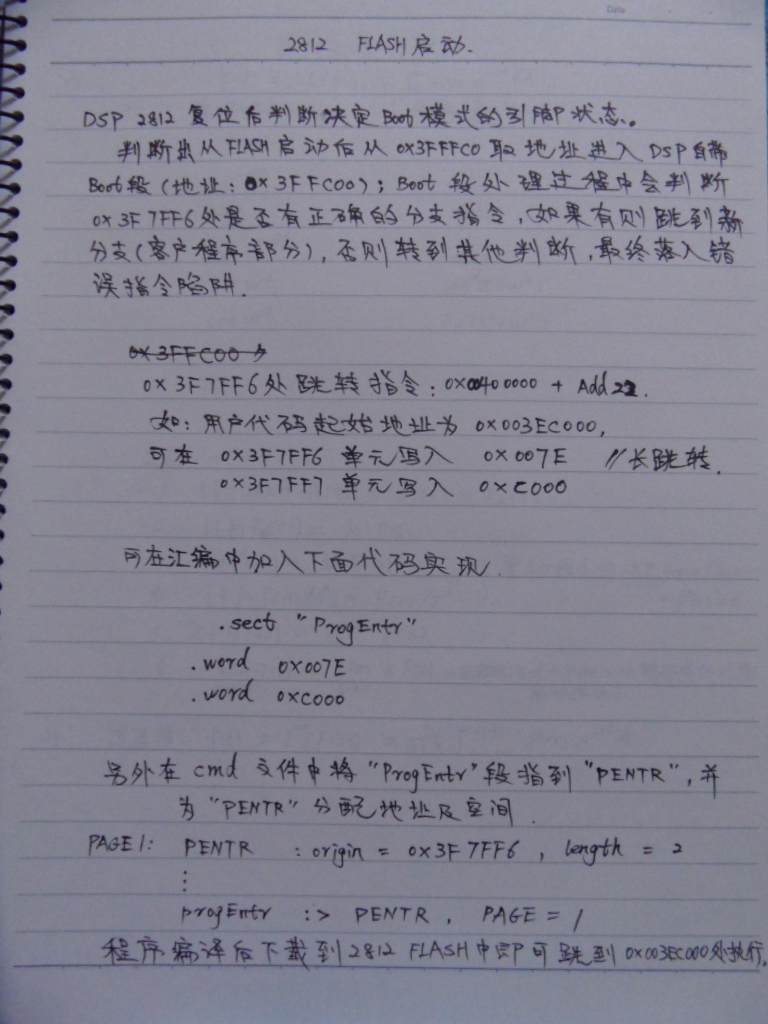 Date
2812 FLASH启动.
DSP 2812 复位后判断决定Boot模式的引脚状态。
判断出从FLASH启动后从0x3FFFC0取地址进入DSP自带
Boot段(地址:0x3FFC00);Boot段处理过程中会判断
0x3F7FF6处是否有正确的分支指令,如果有则跳到新
分支(客户程序部分),否则转到其他判断,最终落入错
误指令陷阱.
0x3FFC00
0x3F7FF6处跳转指令:0x00400000 + Add22.
如:用户代码起始地址为 0x003EC000,
可在 0x3F7FF6 单元写入 0x007E //长跳转.
0x3F7FF7 单元写入 0xC000
可在汇编中加入下面代码实现.
.sect "ProgEntr"
.word 0x007E
.word 0xC000
另外在cmd文件中将"ProgEntr"段指到"PENTR",并
为"PENTR"分配地址及空间.
PAGE1: PENTR :origin = 0x3F7FF6, length = 2
⋮
progEntr :> PENTR, PAGE = 1
程序编译后下载到2812 FLASH中即可跳到0x003EC000处执行.